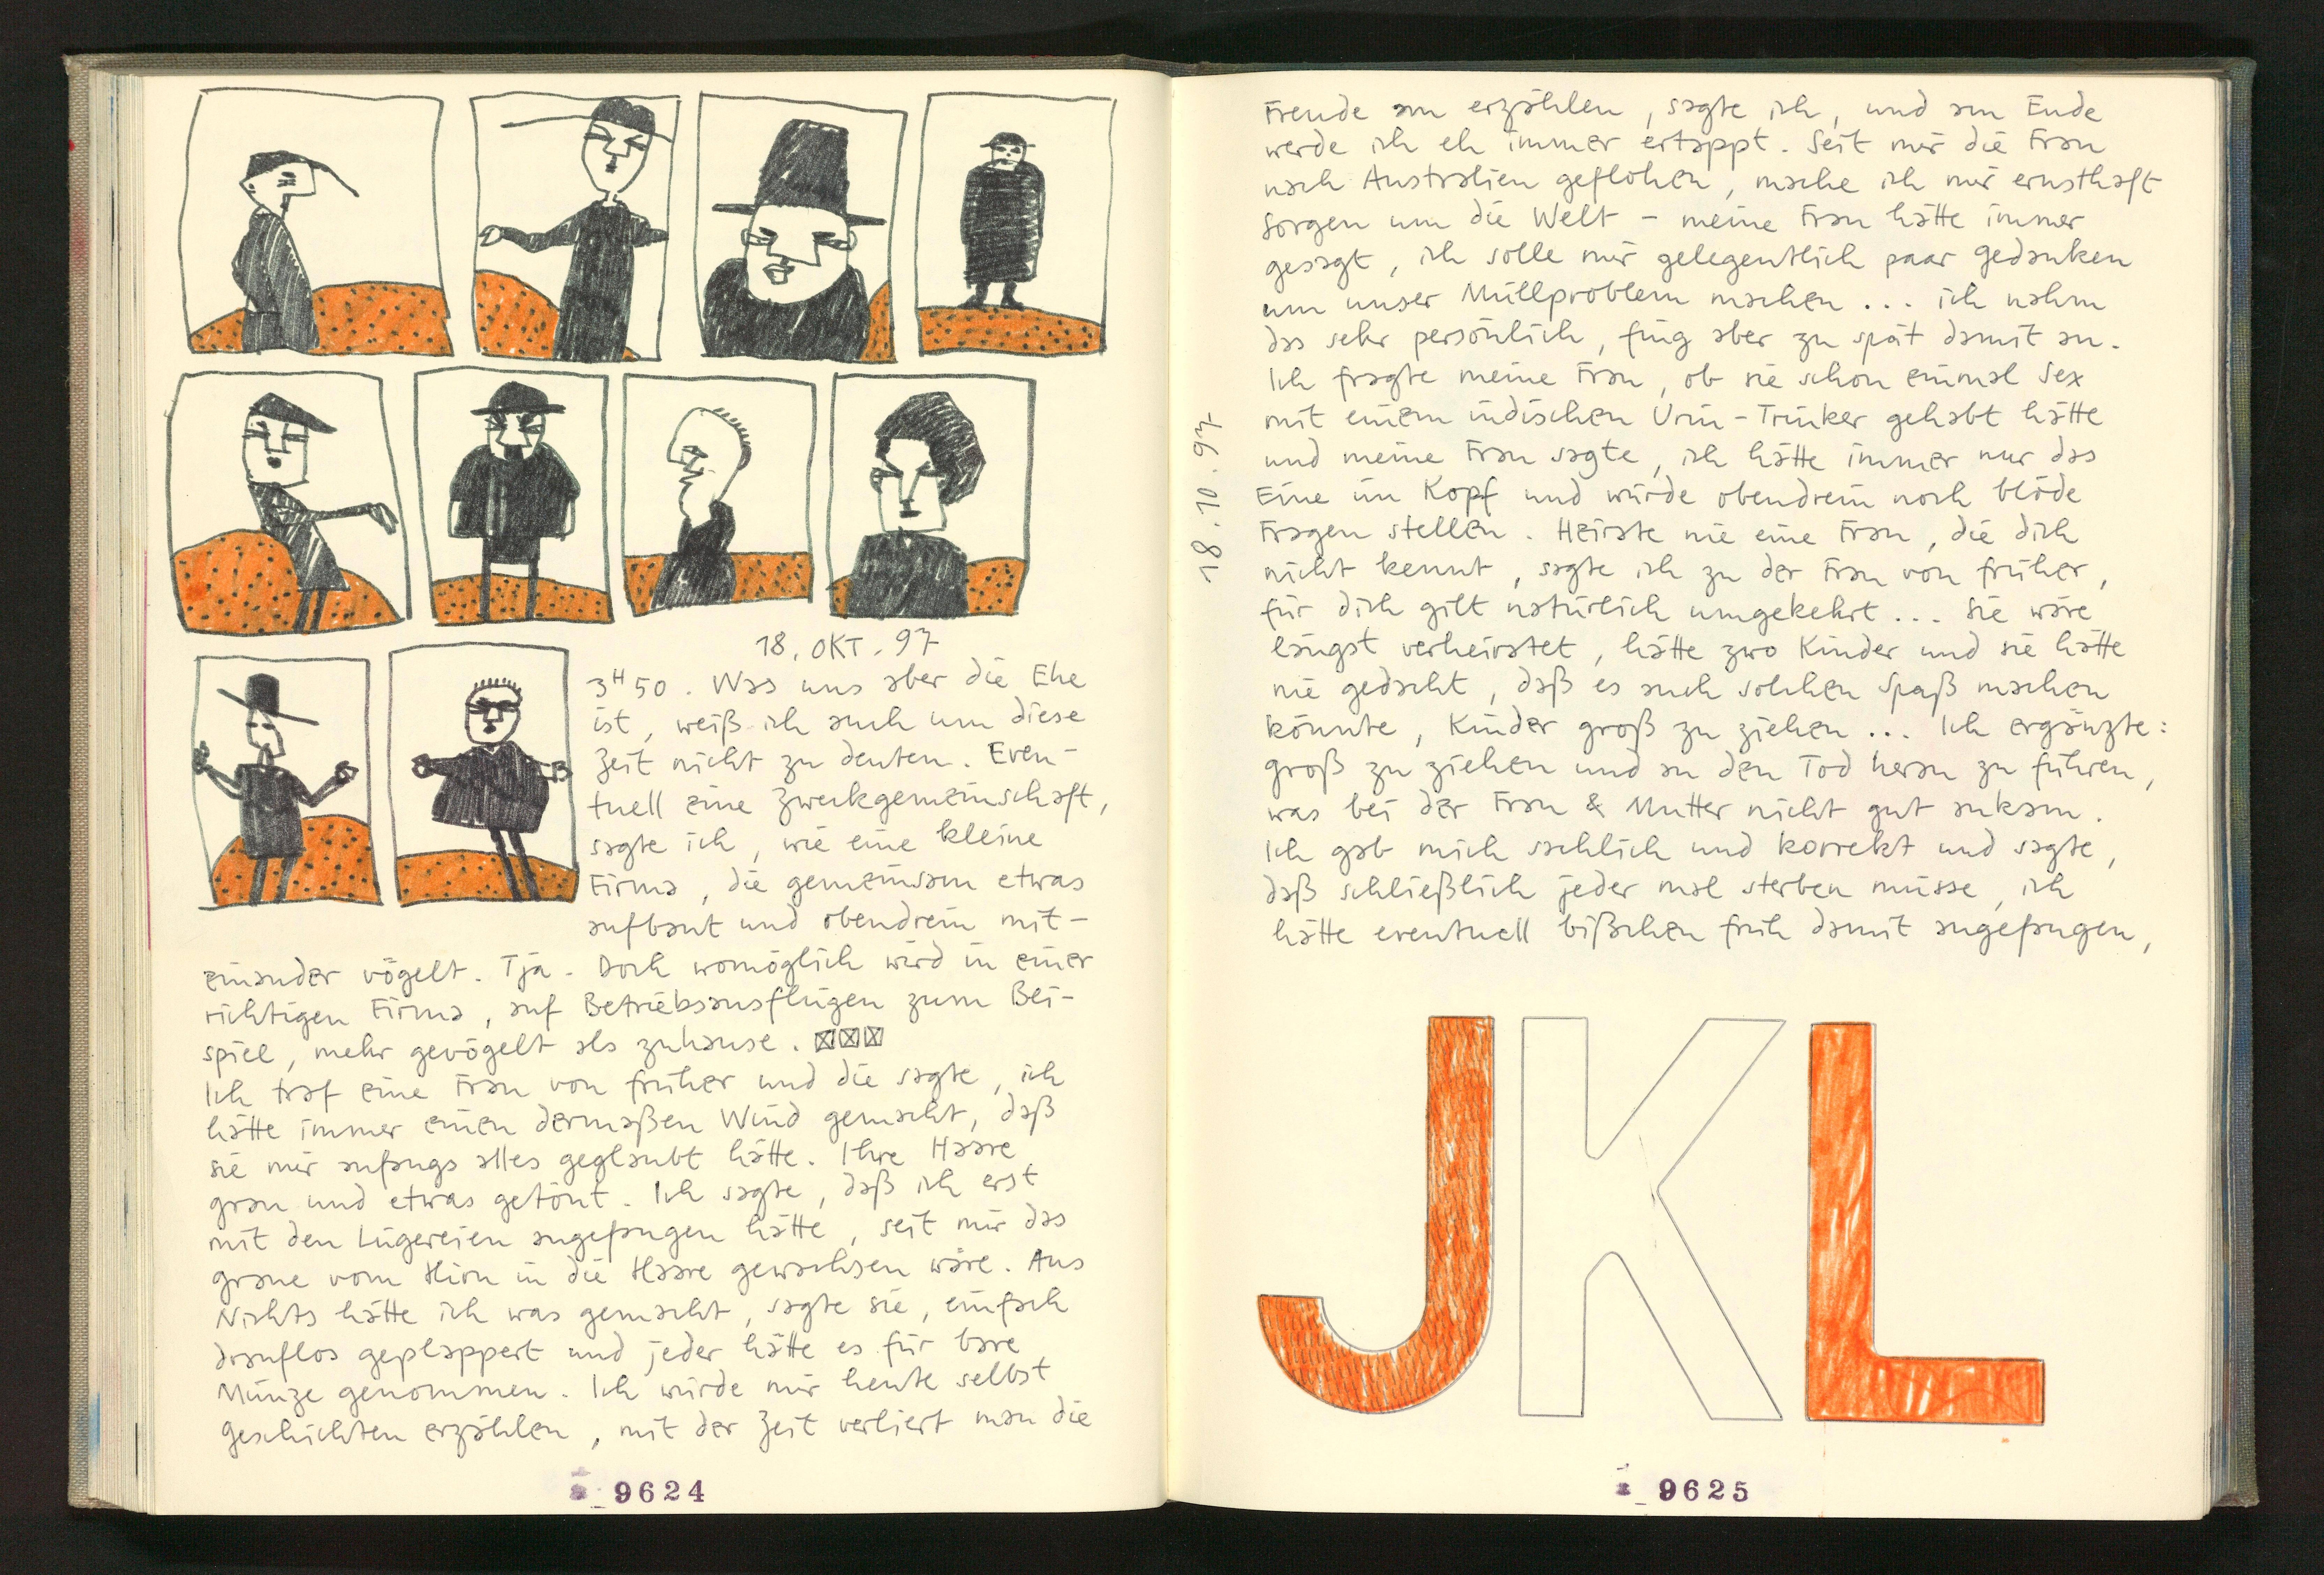 18. OKT. 97
3H50. Was uns aber die Ehe
ist, weiß ich auch um diese
Zeit nicht zu deuten. Even-
tuell eine Zweckgemeinschaft,
sagte ich, wie eine kleine
Firma, die gemeinsam etwas
aufbaut und obendrein mit-
einander vögelt. Tja. Doch womöglich wird in einer
richtigen Firma, auf Betriebsausflügen zum Bei-
spiel, mehr gevögelt als zuhause.
Ich traf eine Frau von früher und die sagte, ich
hätte immer einen dermaßen Wind gemacht, daß
sie mir anfangs alles geglaubt hätte. Ihre Haare
grau und etwas getönt. Ich sagte, daß ich erst
mit den Lügereien angefangen hätte, seit mir das
graue vom Hirn in die Haare gewachsen wäre. Aus
Nichts hätte ich was gemacht, sagte sie, einfach
drauflos geplappert und jeder hätte es für bare
Münze genommen. Ich würde mir heute selbst
Geschichten erzählen, mit der Zeit verliert man die
9624
18.10.97
Freude am erzählen, sagte ich, und am Ende
werde ich eh immer ertappt. Seit mir die Frau
nach Australien geflohen, mache ich mir ernsthaft
Sorgen um die Welt – meine Frau hätte immer
gesagt, ich solle mir gelegentlich paar Gedanken
um unser Müllproblem machen... ich nahm
das sehr persönlich, fing aber zu spät damit an.
Ich fragte meine Frau, ob sie schon einmal Sex
mit einem indischen Urin-Trinker gehabt hätte
und meine Frau sagte, ich hätte immer nur das
Eine im Kopf und würde obendrein noch blöde
Fragen stellen. Heirate nie eine Frau, die dich
nicht kennt, sagte ich zu der Frau von früher,
für dich gilt natürlich umgekehrt... Sie wäre
längst verheiratet, hätte zwo Kinder und sie hätte
nie gedacht, daß es auch solchen Spaß machen
könnte, Kinder groß zu ziehen... Ich ergänzte:
groß zu ziehen und an den Tod heran zu führen,
was bei der Frau & Mutter nicht gut ankam.
Ich gab mich sachlich und korrekt und sagte,
daß schließlich jeder mal sterben müsse, ich
hätte eventuell bißchen früh damit angefangen,
JKL
9625